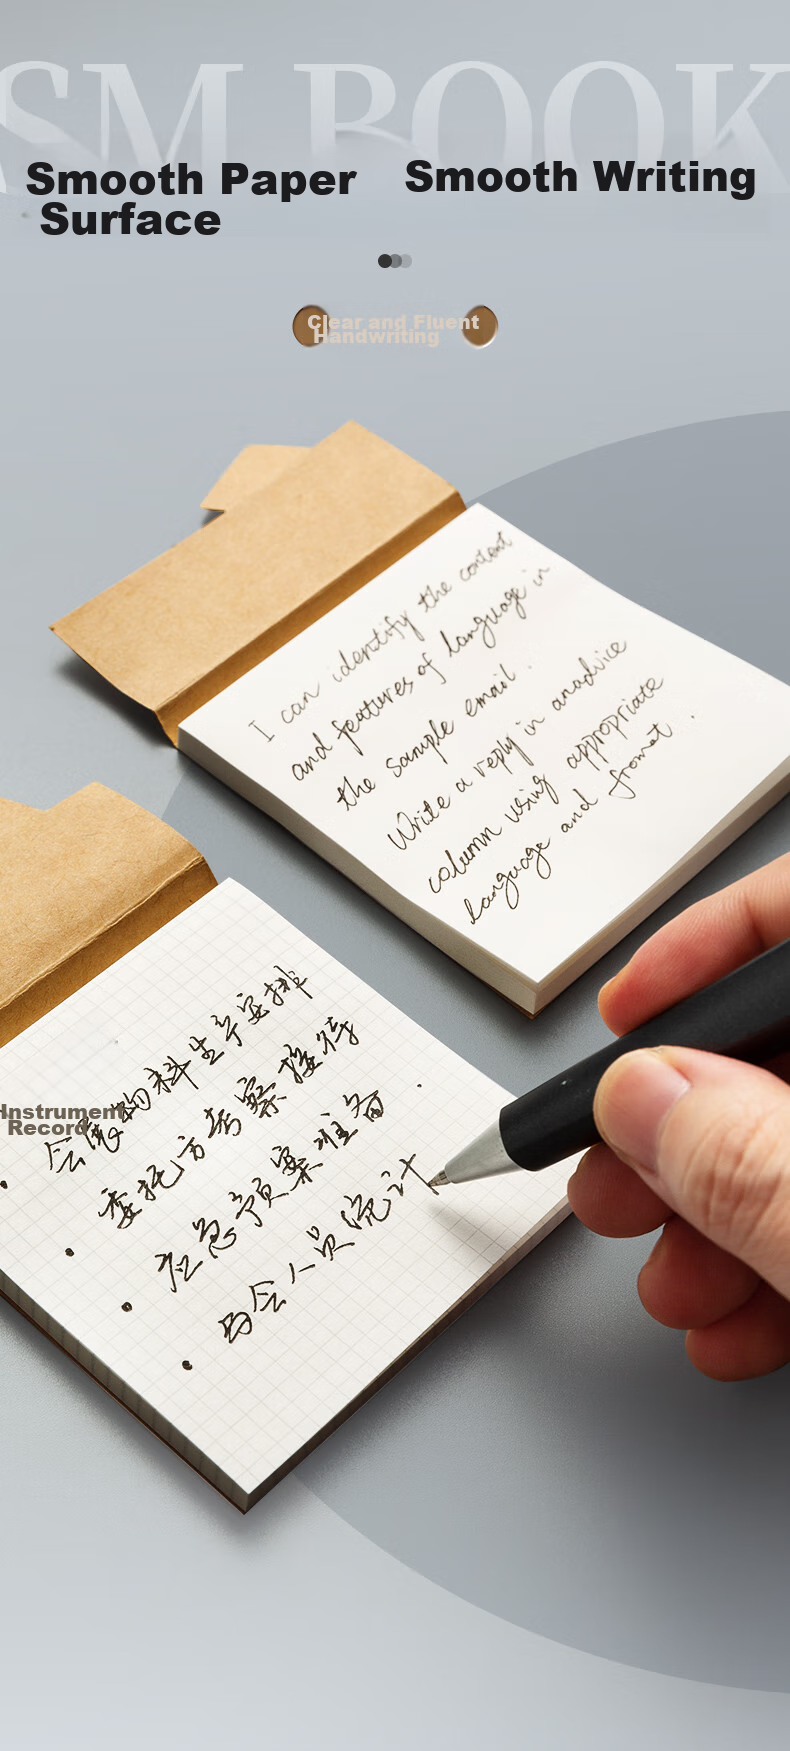 SM BOOK
Smooth Paper
Surface
Smooth Writing
Clear and Fluent
Handwriting
I can identify the content
and features of language in
the sample email.
Write a reply in anadvice
column using appropriate
language and fromat.
Instrument
Record
会展物料生产安排
委托方考察接待
应急预案准备
与会人员统计